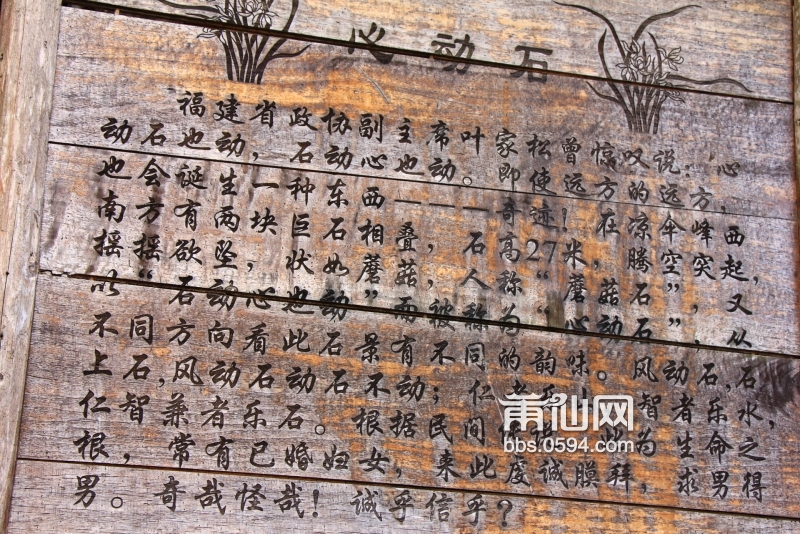 心动石
福建省政协副主席叶家松曾惊叹说:“心
动石也动,石动心也动。即使远方的远方,
也会诞生一种东西———奇迹!在凉伞峰西
南方有两块巨石相叠,石高27米,腾空突起,
摇摇欲坠,状如蘑菇,人称“蘑菇石”,又
以“石动心也动”而被称为“心动石”,从
不同方向看此石景有不同的韵味。风动石,石
上石,风动石动石不动;仁者乐山,智者乐水,
仁智兼者乐石。根据民间 为生命之
根,常有已婚妇女,来此虔诚膜拜,求男得
男。奇哉怪哉!诚乎信乎?
莆仙网
bbs.0594.com